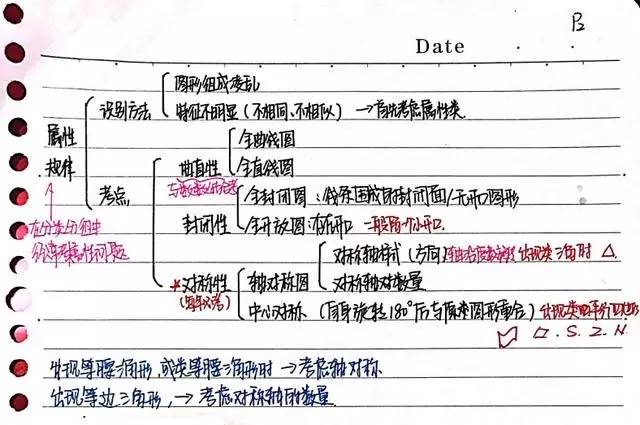 P2
Date
图形组成凌乱
识别方法
特征不明显（不相同、不相似）→首先考虑属性类
属性
规律
全曲线图
曲直性
全直线图
考点
全封闭图：线条围成的封闭面/无开口图形
封闭性
全开放图：有开口 一般留一个小开口
在分类分组中
经常考属性问题
对称轴样式（方向） 出现类三角时 △
*对称性
轴对称图
对称轴对数量
中心对称（自身旋转180°后与原来图形重合）出现类
▱.S.Z.N.
出现等腰三角形,或类等腰三角形时→考虑轴对称
出现等边三角形,→考虑对称轴的数量